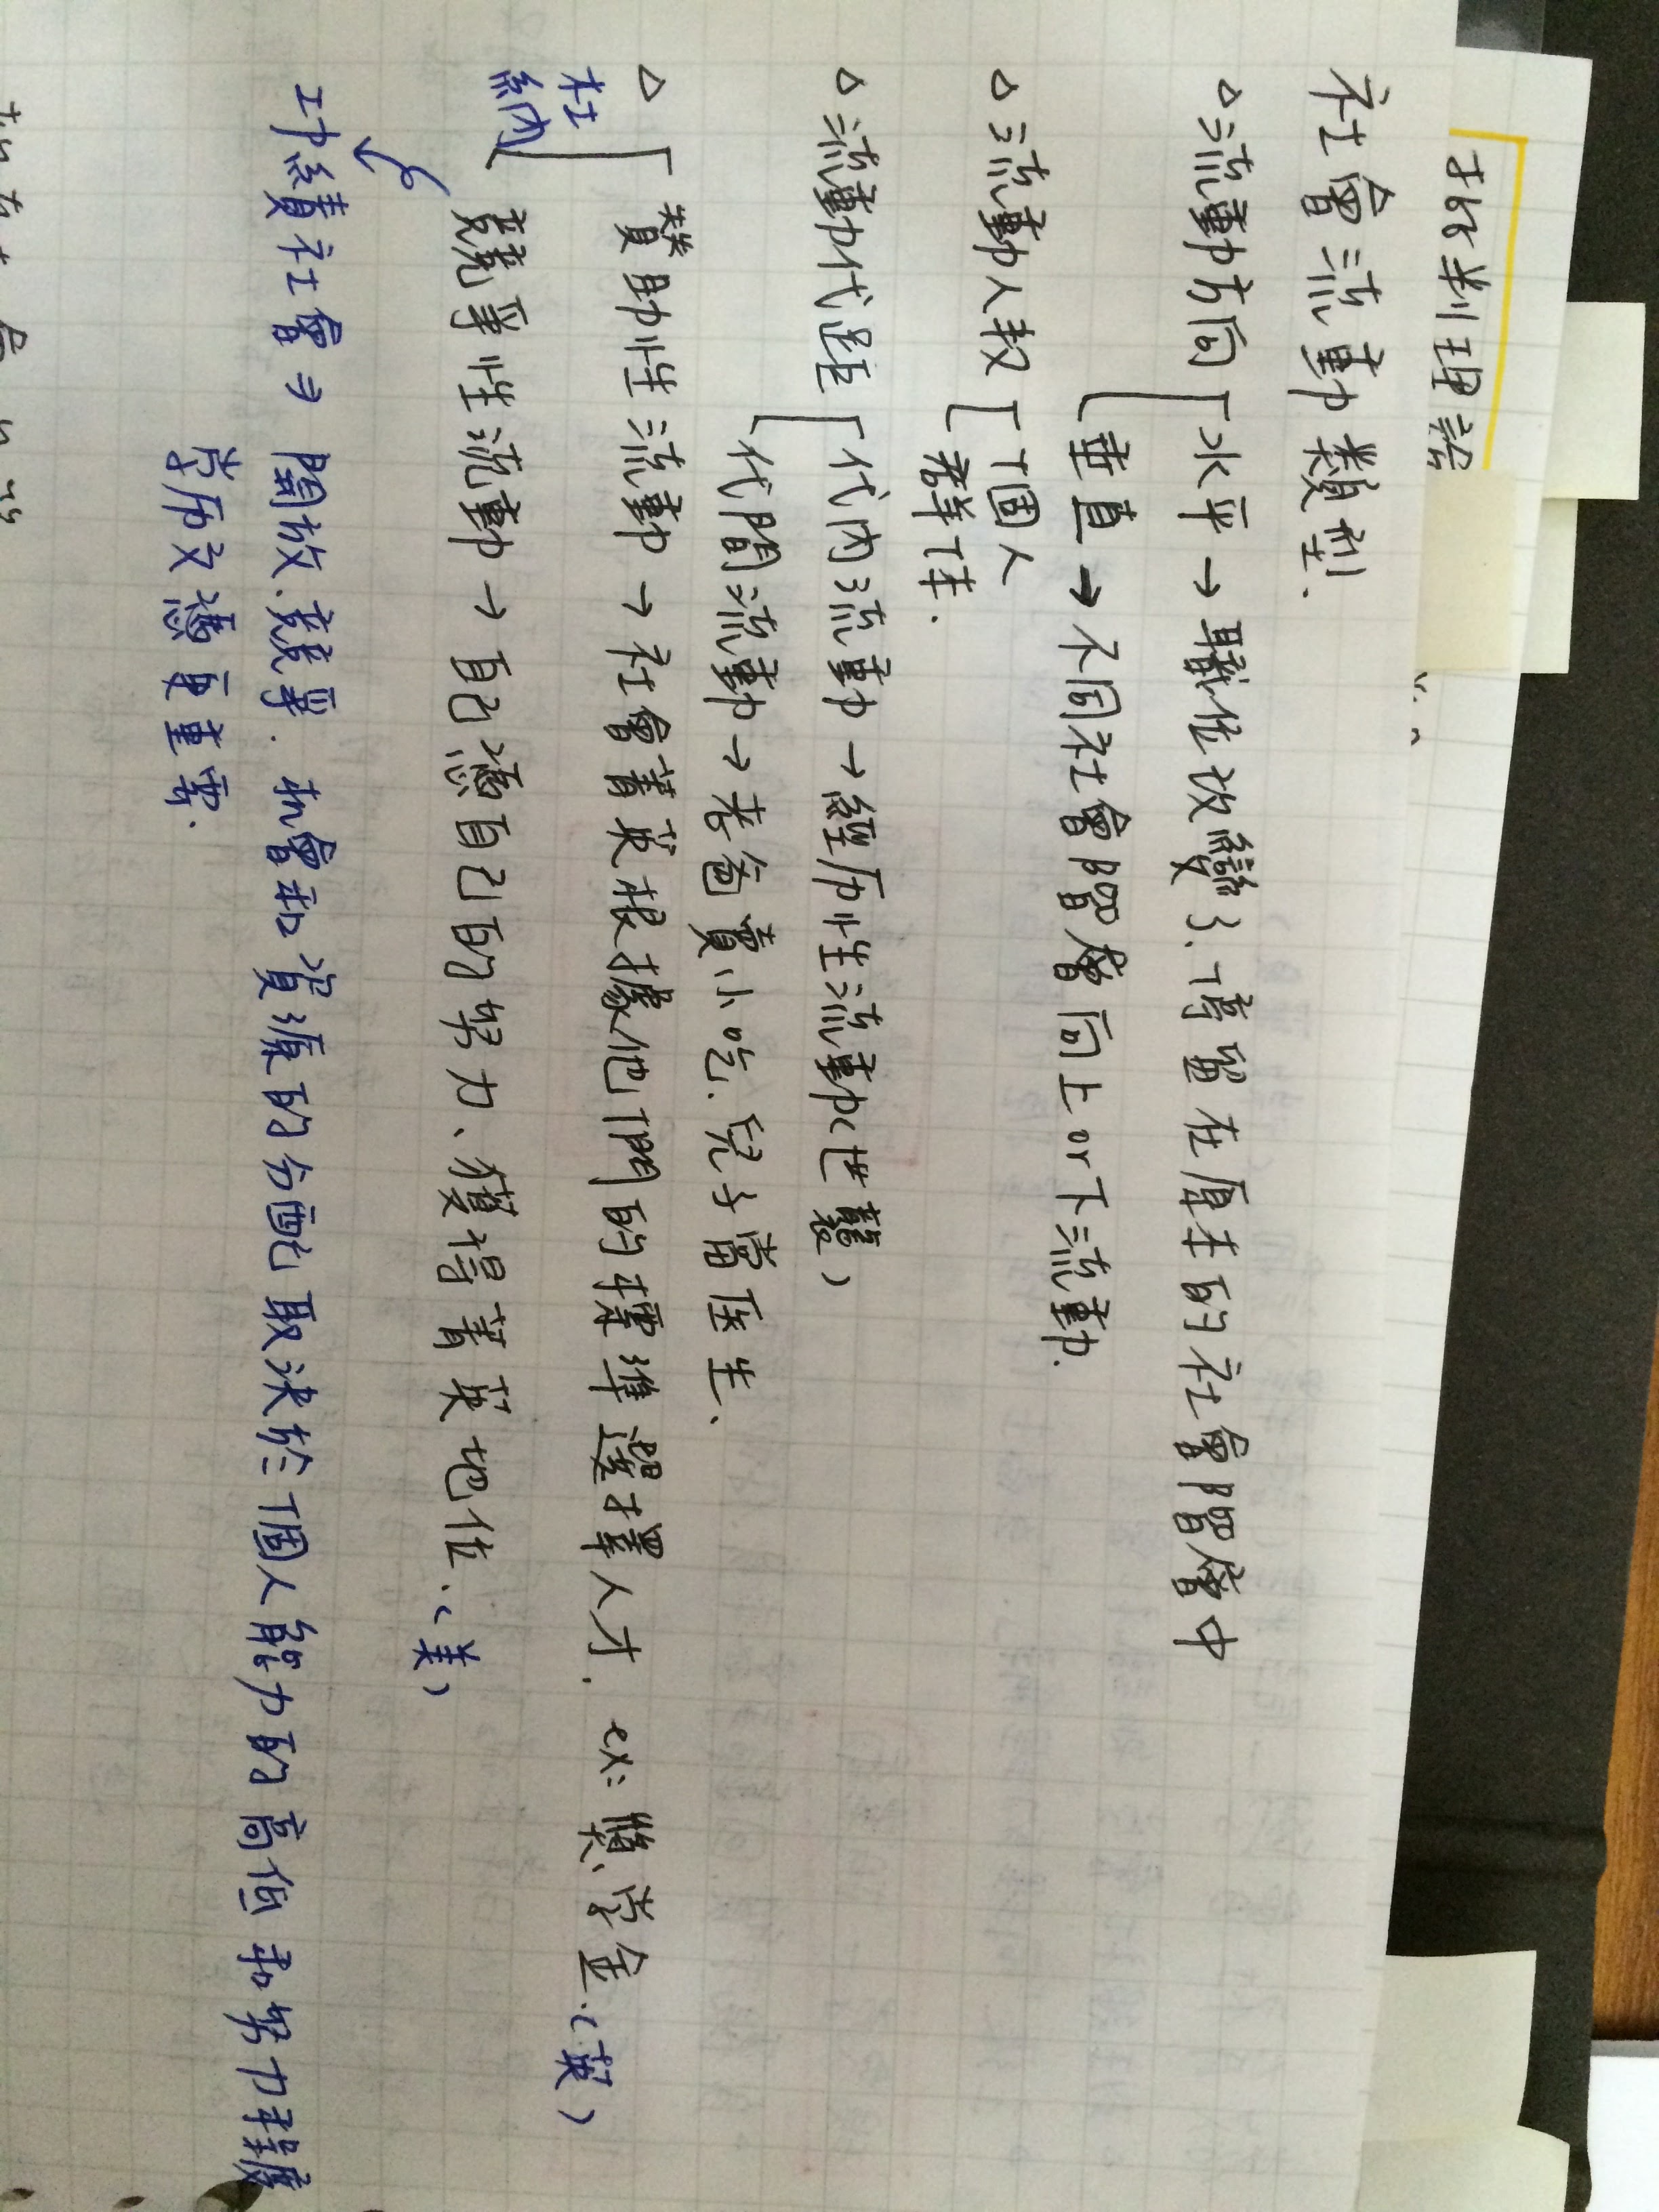 批判理論
社會流動類型.
△流動方向 水平→職位改變了、停留在原本的社會階層中
垂直→不同社會階層向上or下流動.
△流動人數 個人
群体.
△流動代距 代內流動→經历性流動(世襲)
代間流動→老爸賣小吃.兒子當医生、
△ 贊助性流動→社會菁英根據他們的標準選擇人才. ex:獎、学金.(英)
杜納
競爭性流動→自己憑自己的努力、獲得菁英地位、(美)
功績社會⇒開放、競爭. 机會和資源的分配取決於個人能力的高低和努力程度
学历文憑更重要.